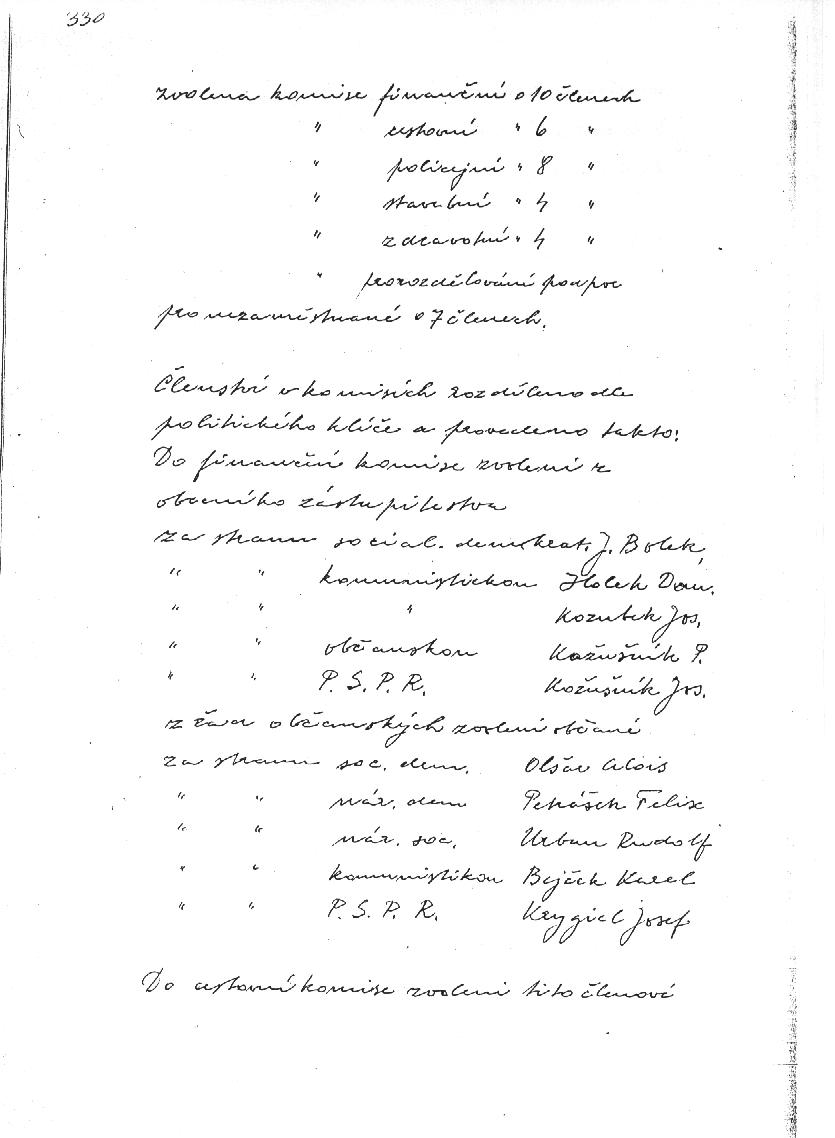 330
zvolena komise finanční o 10 členech
" cestovní " 6 "
" policejní " 8 "
" stavební " 4 "
" zdravotní " 4 "
" prorozdělování podpor
pro nezaměstnané o 7 členech.
Členství v komisích rozděleno dle
politického klíče a provedeno takto:
Do finanční komise zvoleni z
obecního zástupitelstva
za stranu social. demokrat. J. Bolek,
" " komunistickou Holek Dom.
" " " Kozubek Jos.
" " občanskou Kažušník P.
" " P. S. P. R. Kožušník Jos.
z řad občanských zvoleni občané
za stranu soc. dem. Olšar Alois
" " nár. dem Pekásek Felix
" " nár. soc. Urban Rudolf
" " komunistikou Bejček Karel
" " P. S. P. R. Krygiel Josef
Do cestovní komise zvoleni tito členové